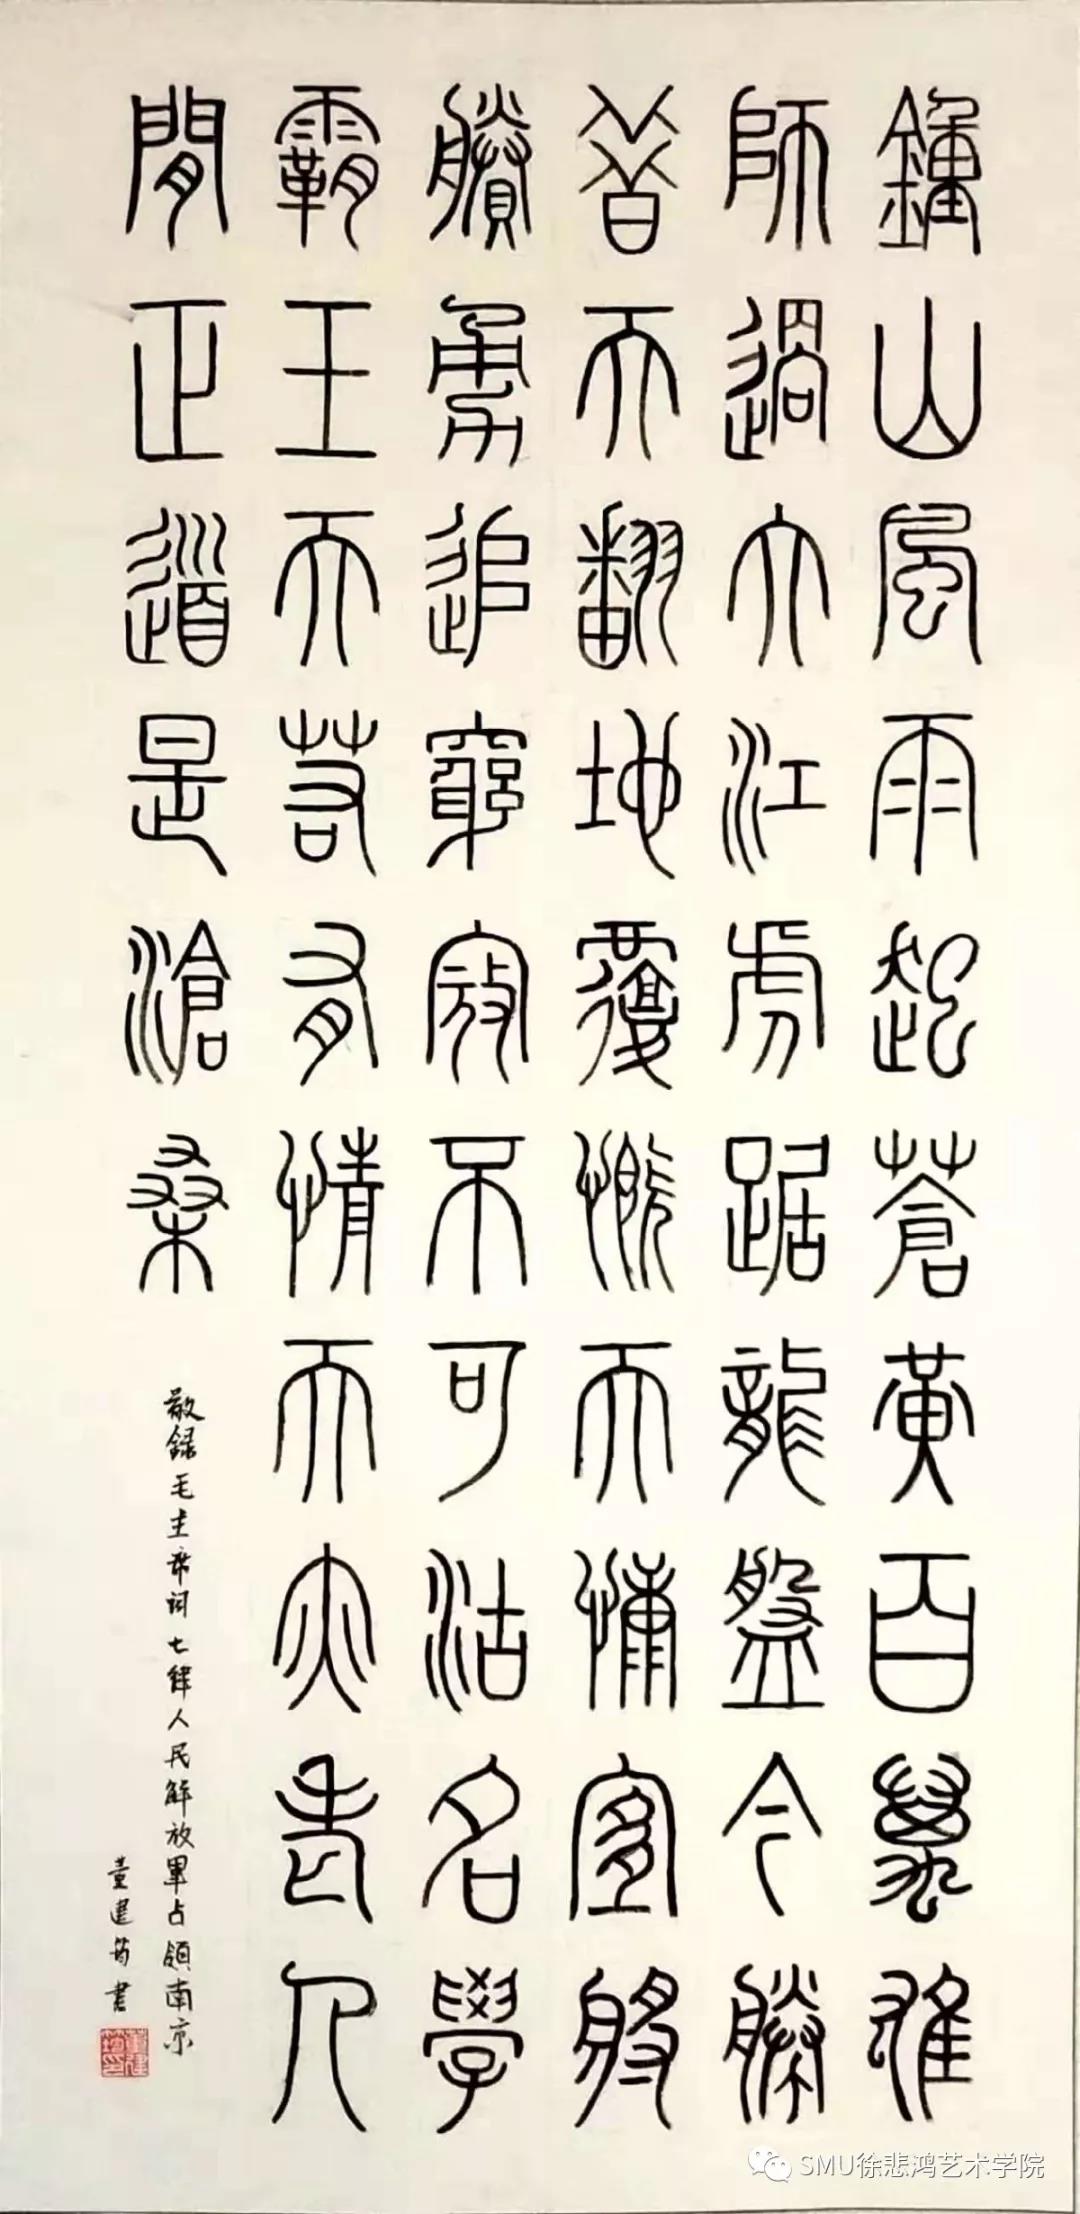 鍾山風雨起蒼黃百萬雄
師過大江虎踞龍盤今勝
昔天翻地覆慨而慷宜將
賸勇追窮寇不可沽名學
霸王天若有情天亦老人
閒正道是滄桑
敬録毛主席词七律人民解放軍占領南京
董建書
SMU徐悲鸿艺术学院